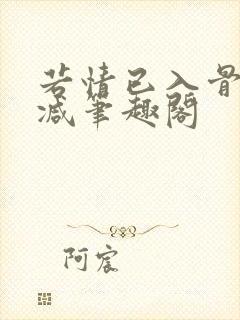 若情已入骨
减笔趣阁
阿宸